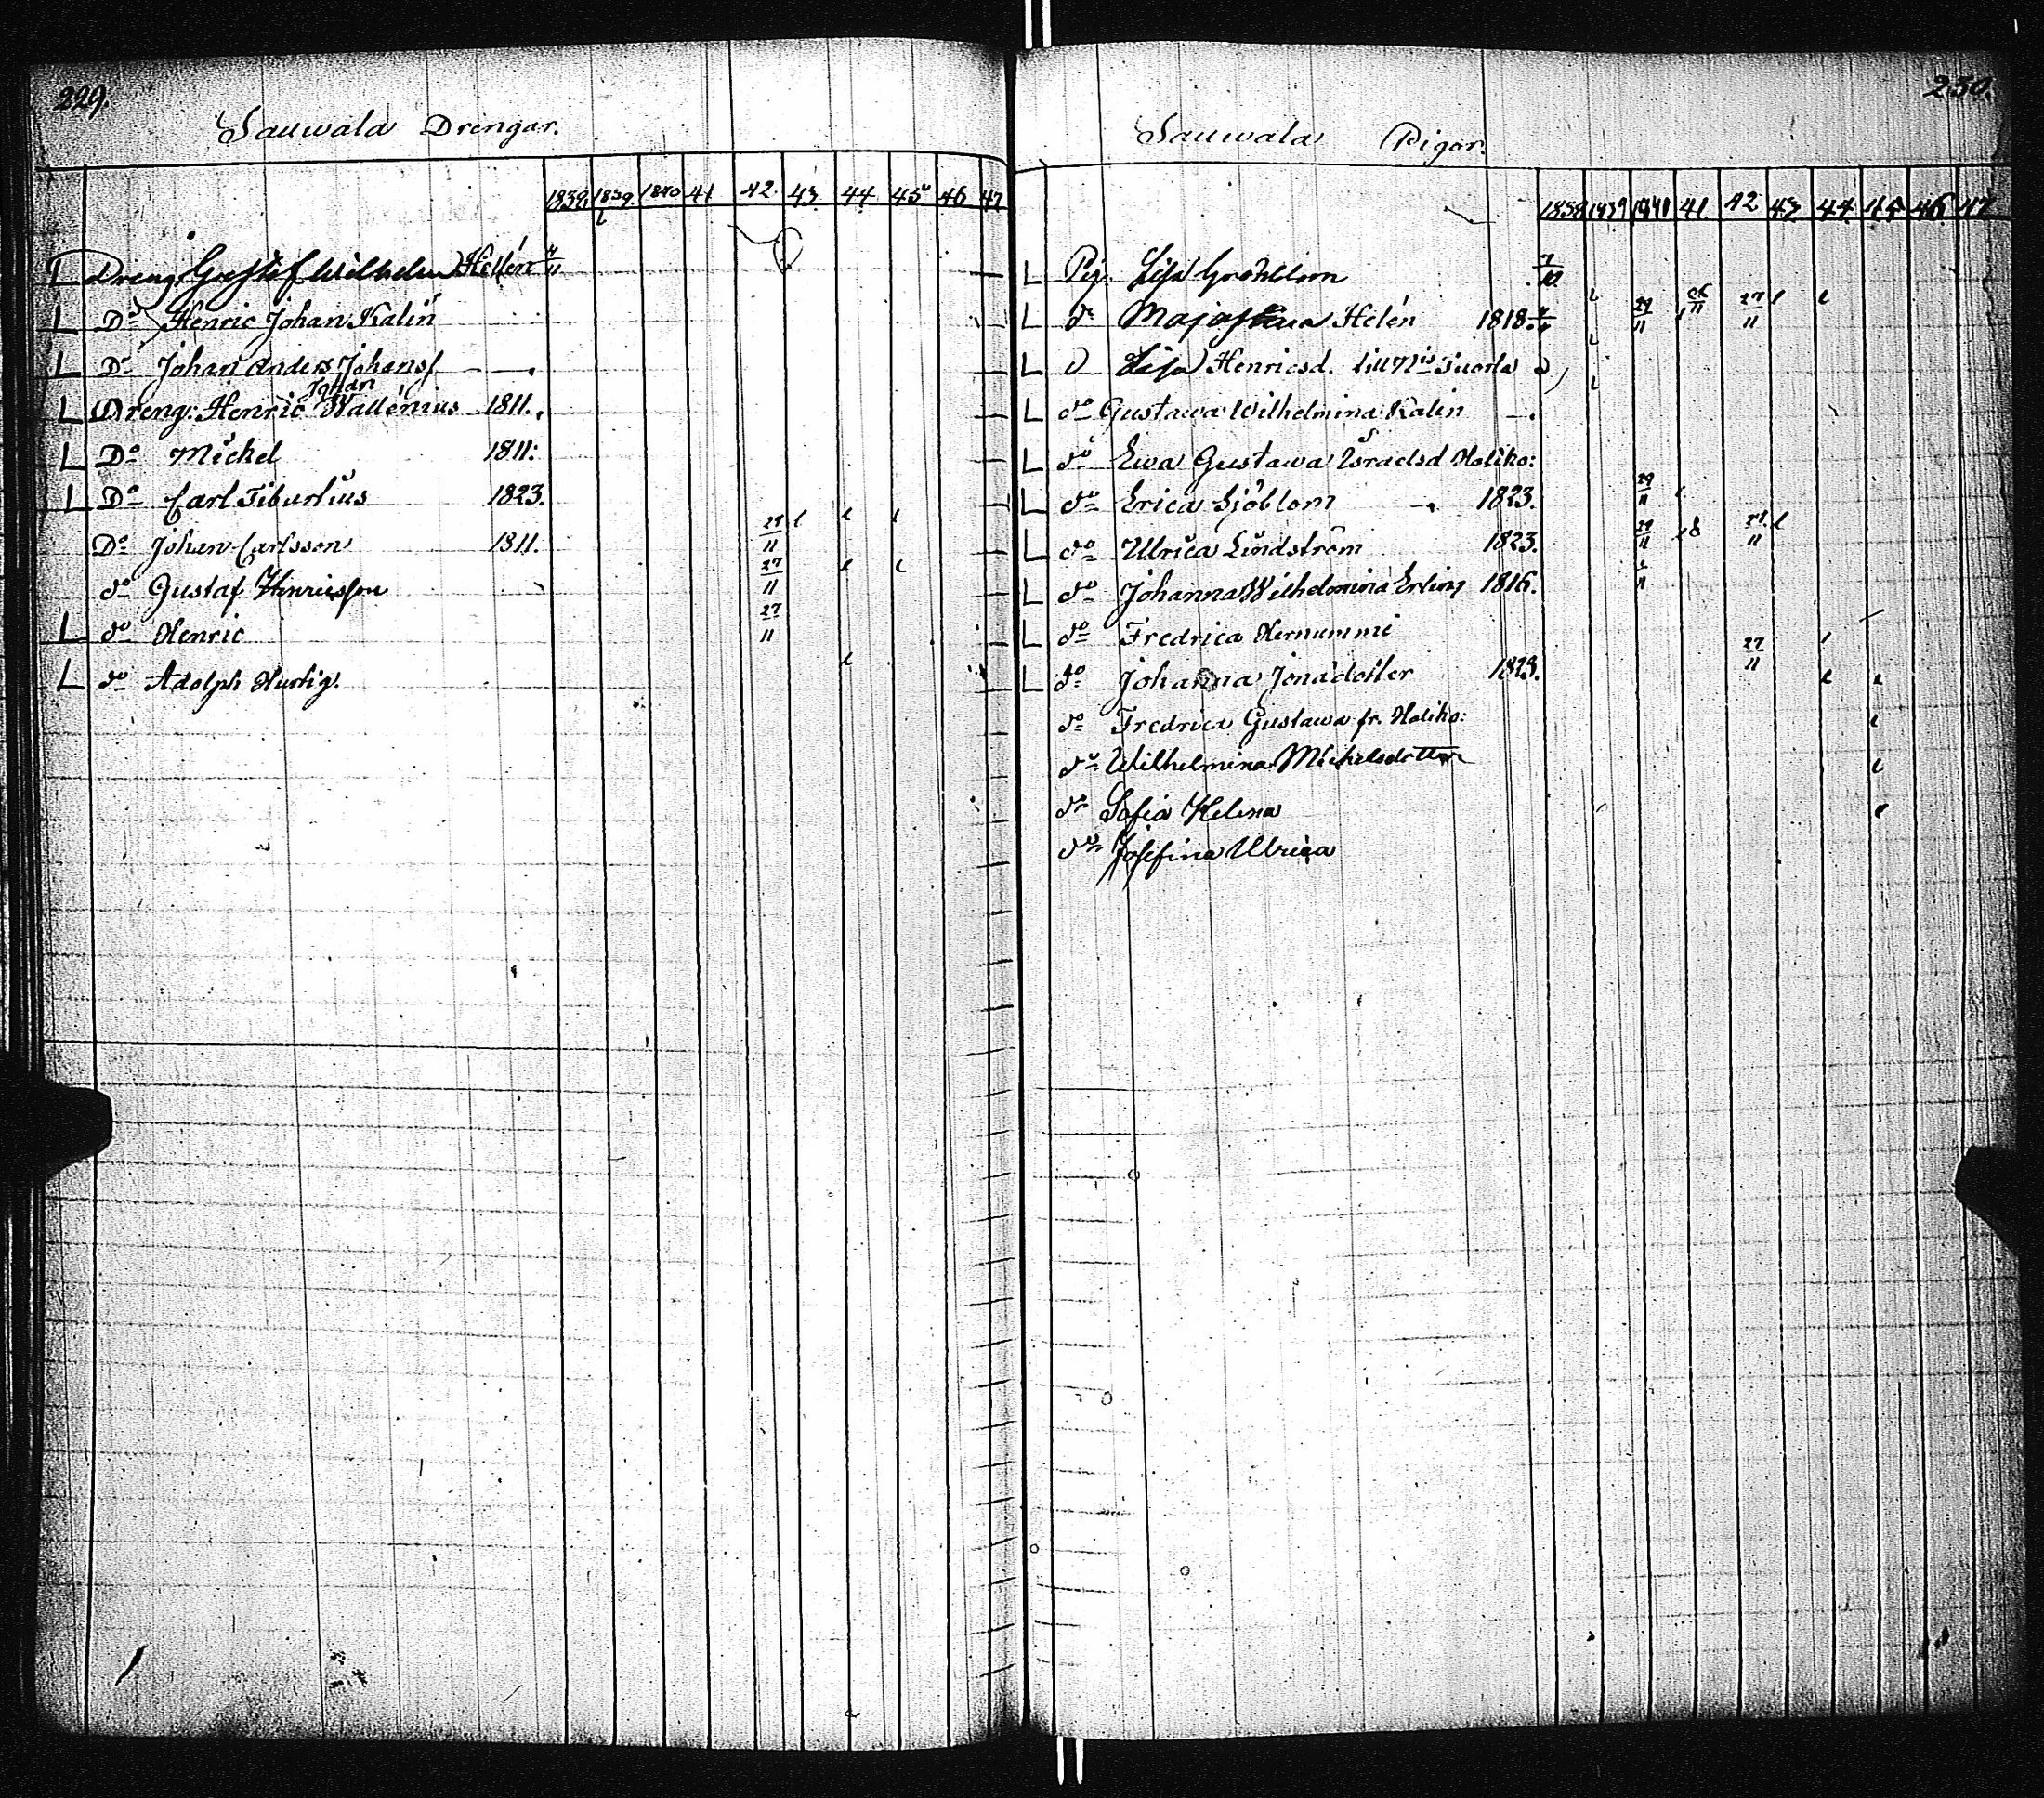 229.
Sauwala Drengar.
1838. 1839. 1840 41 42. 43. 44. 45 46 47
L Dreng. Gustaf Wilhelm Hellén 4/11
L Do Henric Johan Kalin
L Do Johan Anders Johans
L Dreng: Henric Johan Wallenius 1811.
L Do Michel 1811:
L Do Carl Tiburtius 1823.
Do Johan Carlsson 1811. 27/11
do Gustaf Henricsson 27/11
L do Henric 27/11
L do Adolph Hurtig.
230.
Sauwala Pigor.
1838 1839 41 42 43 44 45 46 47
L Pig. Lisa Gröhblom 7/10
L do Maja Stina Helén 1818. 29/11 27/11
L d Lisa Henricsd. till Nis Suorla
L do Gustawa Wilhelmina Kalin
L do Ewa Gustawa Israelsd Haliko:
L do Erica Sjöblom 1823. 29/11
L do Ulrica Lindström 1823. 29/11 27/11
L do Johanna Wilhelmina Erling 1816.
L do Fredrica Hernummi
L do Johanna Jonädotter 1823. 27/11
do Fredrica Gustawa fr. Haliko:
do Wilhelmina Michelsdotter
do Sofia Helena
do Josefina Ulrica